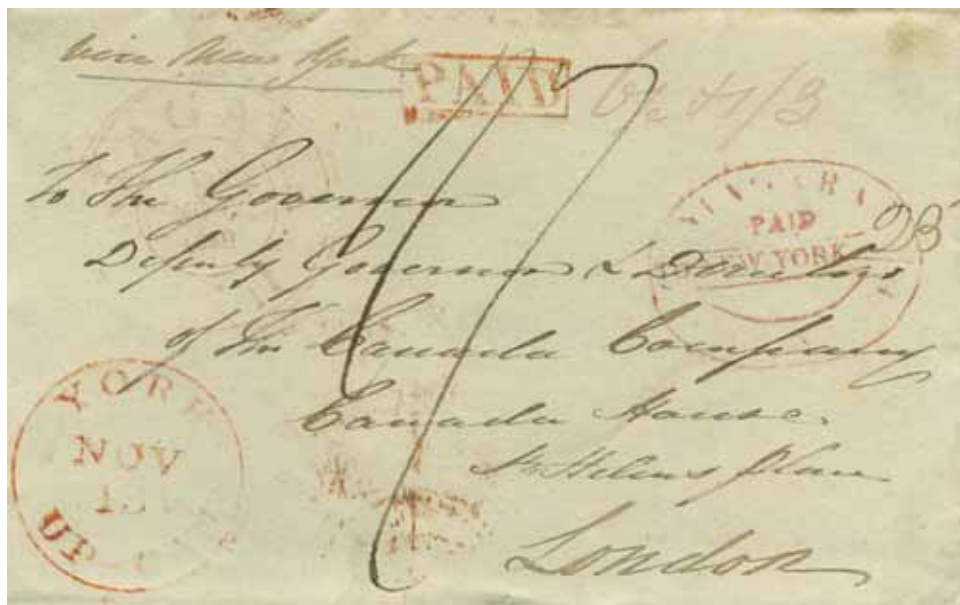 via New York
PAID
To The Governor
Deputy Governor & Directors
of The Canada Company
Canada House
St Helens Place
London
NIAGARA
PAID
NEW YORK
YORK
NOV
UP